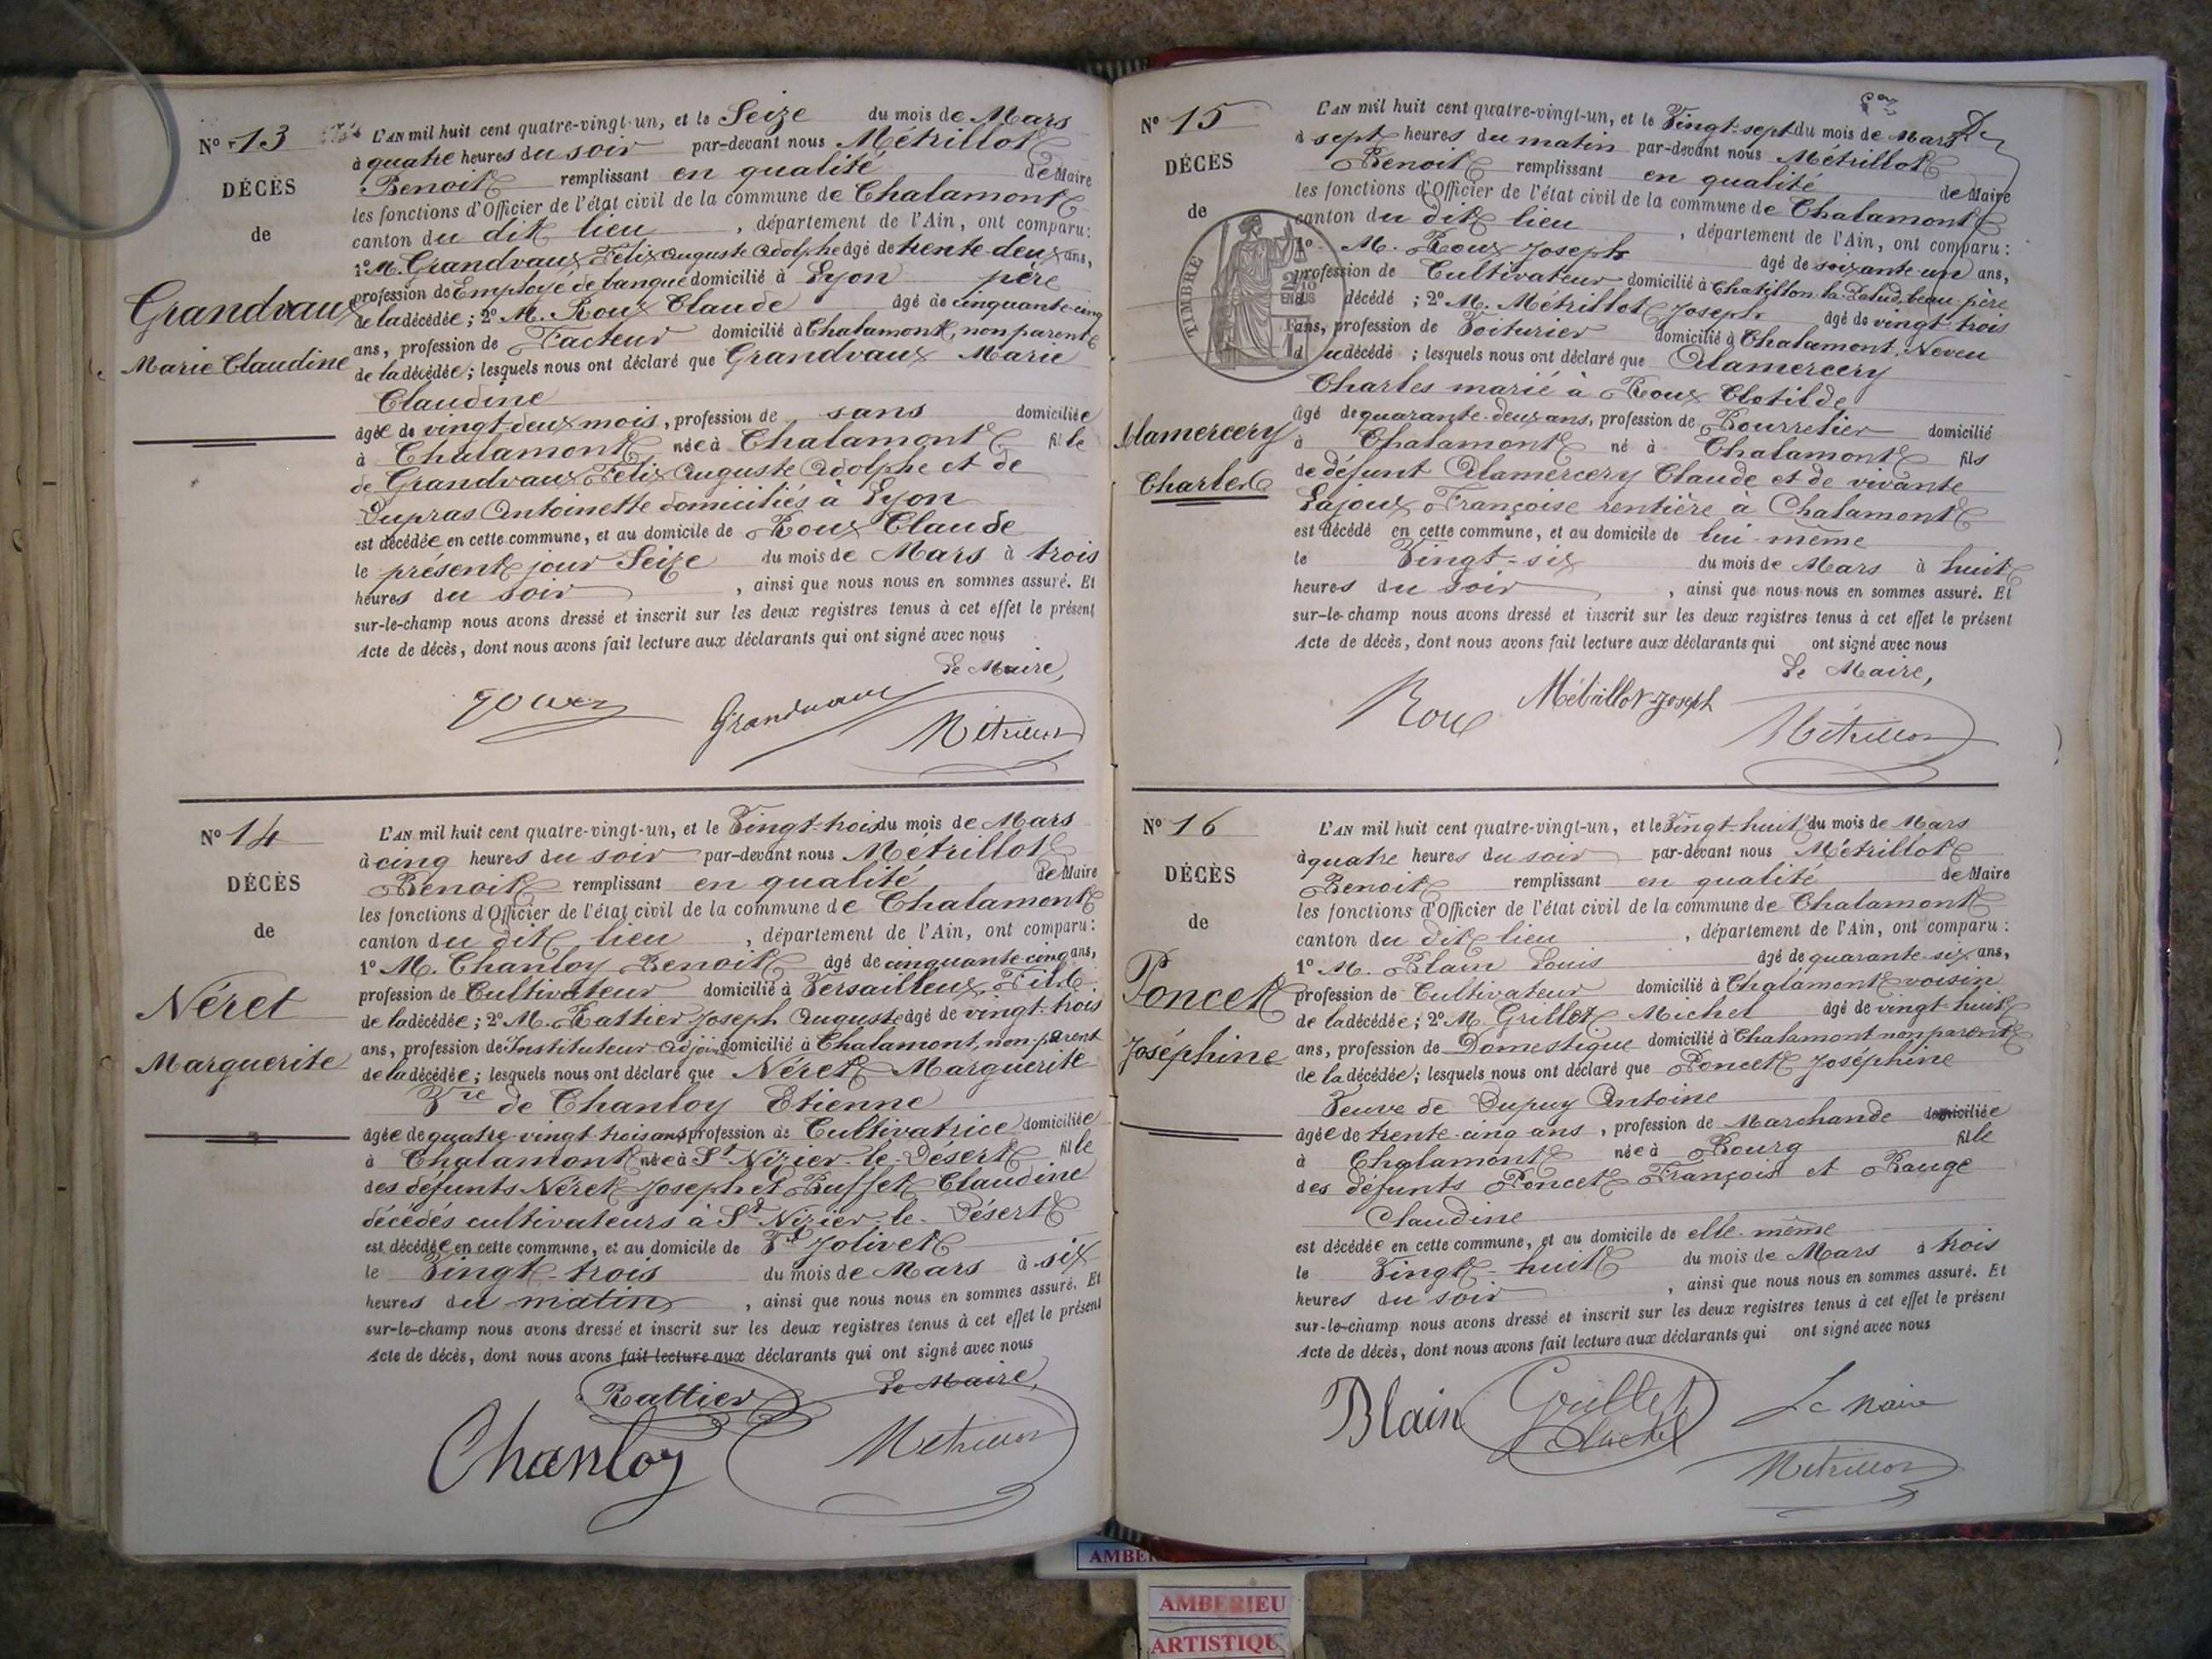 N° 13
DÉCÈS
de
Grandvaux
Marie Claudine
L'AN mil huit cent quatre-vingt-un, et le Seize du mois de Mars
à quatre heures du soir par-devant nous Métrillot
Benoit remplissant en qualité de Maire
les fonctions d'Officier de l'état civil de la commune de Chalamont
canton du dit lieu, département de l'Ain, ont comparu:
1° M. Grandvaux Félix Auguste Adolphe âgé de trente-deux ans,
profession de Employé de banque domicilié à Lyon père
de la décédée; 2° M. Roux Claude âgé de cinquante-cinq
ans, profession de Facteur domicilié à Chalamont, non parent
de la décédée; lesquels nous ont déclaré que Grandvaux Marie
Claudine
âgée de vingt-deux mois, profession de sans domiciliée
à Chalamont née à Chalamont fille
de Grandvaux Félix Auguste Adolphe et de
Dupras Antoinette domiciliés à Lyon
est décédée en cette commune, et au domicile de Roux Claude
le présent jour Seize du mois de Mars à trois
heures du soir, ainsi que nous nous en sommes assuré. Et
sur-le-champ nous avons dressé et inscrit sur les deux registres tenus à cet effet le présent
Acte de décès, dont nous avons fait lecture aux déclarants qui ont signé avec nous
Le Maire,
Grandvaux
Métrillot
N° 14
DÉCÈS
de
Néret
Marguerite
L'AN mil huit cent quatre-vingt-un, et le Vingt-trois du mois de Mars
à cinq heures du soir par-devant nous Métrillot
Benoit remplissant en qualité de Maire
les fonctions d'Officier de l'état civil de la commune de Chalamont
canton du dit lieu, département de l'Ain, ont comparu:
1° M. Chanloy Benoit âgé de cinquante-cinq ans,
profession de Cultivateur domicilié à Versailleux, Fils
de la décédée; 2° M. Rattier Joseph Auguste âgé de vingt-trois
ans, profession de Instituteur-Adjoint domicilié à Chalamont, non parent
de la décédée; lesquels nous ont déclaré que Néret Marguerite
Vve de Chanloy Etienne
âgée de quatre-vingt-trois ans, profession de Cultivatrice domiciliée
à Chalamont née à St Nizier-le-Désert fille
des défunts Néret Joseph et Buffet Claudine
décédés cultivateurs à St Nizier-le-Désert
est décédée en cette commune, et au domicile de Jolivet
le Vingt-trois du mois de Mars à six
heures du matin, ainsi que nous nous en sommes assuré. Et
sur-le-champ nous avons dressé et inscrit sur les deux registres tenus à cet effet le présent
Acte de décès, dont nous avons fait lecture aux déclarants qui ont signé avec nous
Rattier Le Maire,
Chanloy Métrillot
N° 15
DÉCÈS
de
TIMBRE
Alamercery
Charles
L'AN mil huit cent quatre-vingt-un, et le Vingt-sept du mois de Mars
à sept heures du matin par-devant nous Métrillot
Benoit remplissant en qualité de Maire
les fonctions d'Officier de l'état civil de la commune de Chalamont
canton du dit lieu, département de l'Ain, ont comparu:
1° M. Roux Joseph âgé de soixante-un ans,
profession de Cultivateur domicilié à Chatillon-la-Palud, beau-père
du décédé; 2° M. Métrillot Joseph âgé de vingt-trois
ans, profession de Voiturier domicilié à Chalamont, Neveu
du décédé; lesquels nous ont déclaré que Alamercery
Charles marié à Roux Clotilde
âgé de quarante-deux ans, profession de Bourrelier domicilié
à Chalamont né à Chalamont fils
de défunt Alamercery Claude et de vivante
Lajoux Françoise rentière à Chalamont
est décédé en cette commune, et au domicile de lui-même
le Vingt-six du mois de Mars à huit
heures du soir, ainsi que nous nous en sommes assuré. Et
sur-le-champ nous avons dressé et inscrit sur les deux registres tenus à cet effet le présent
Acte de décès, dont nous avons fait lecture aux déclarants qui ont signé avec nous
Le Maire,
Roux Métrillot Joseph Métrillot
N° 16
DÉCÈS
de
Poncet
Joséphine
L'AN mil huit cent quatre-vingt-un, et le Vingt-huit du mois de Mars
à quatre heures du soir par-devant nous Métrillot
Benoit remplissant en qualité de Maire
les fonctions d'Officier de l'état civil de la commune de Chalamont
canton du dit lieu, département de l'Ain, ont comparu:
1° M. Blain Louis âgé de quarante-six ans,
profession de Cultivateur domicilié à Chalamont voisin
de la décédée; 2° M. Grillet Michel âgé de vingt-huit
ans, profession de Domestique domicilié à Chalamont non parent
de la décédée; lesquels nous ont déclaré que Poncet Joséphine
Veuve de Dupuy Antoine
âgée de trente-cinq ans, profession de Marchande domiciliée
à Chalamont née à Bourg fille
des défunts Poncet François et Rauge
Claudine
est décédée en cette commune, et au domicile de elle-même
le Vingt-huit du mois de Mars à trois
heures du soir, ainsi que nous nous en sommes assuré. Et
sur-le-champ nous avons dressé et inscrit sur les deux registres tenus à cet effet le présent
Acte de décès, dont nous avons fait lecture aux déclarants qui ont signé avec nous
Blain Grillet Michel Le Maire
Métrillot
AMBERIEU
ARTISTIQU